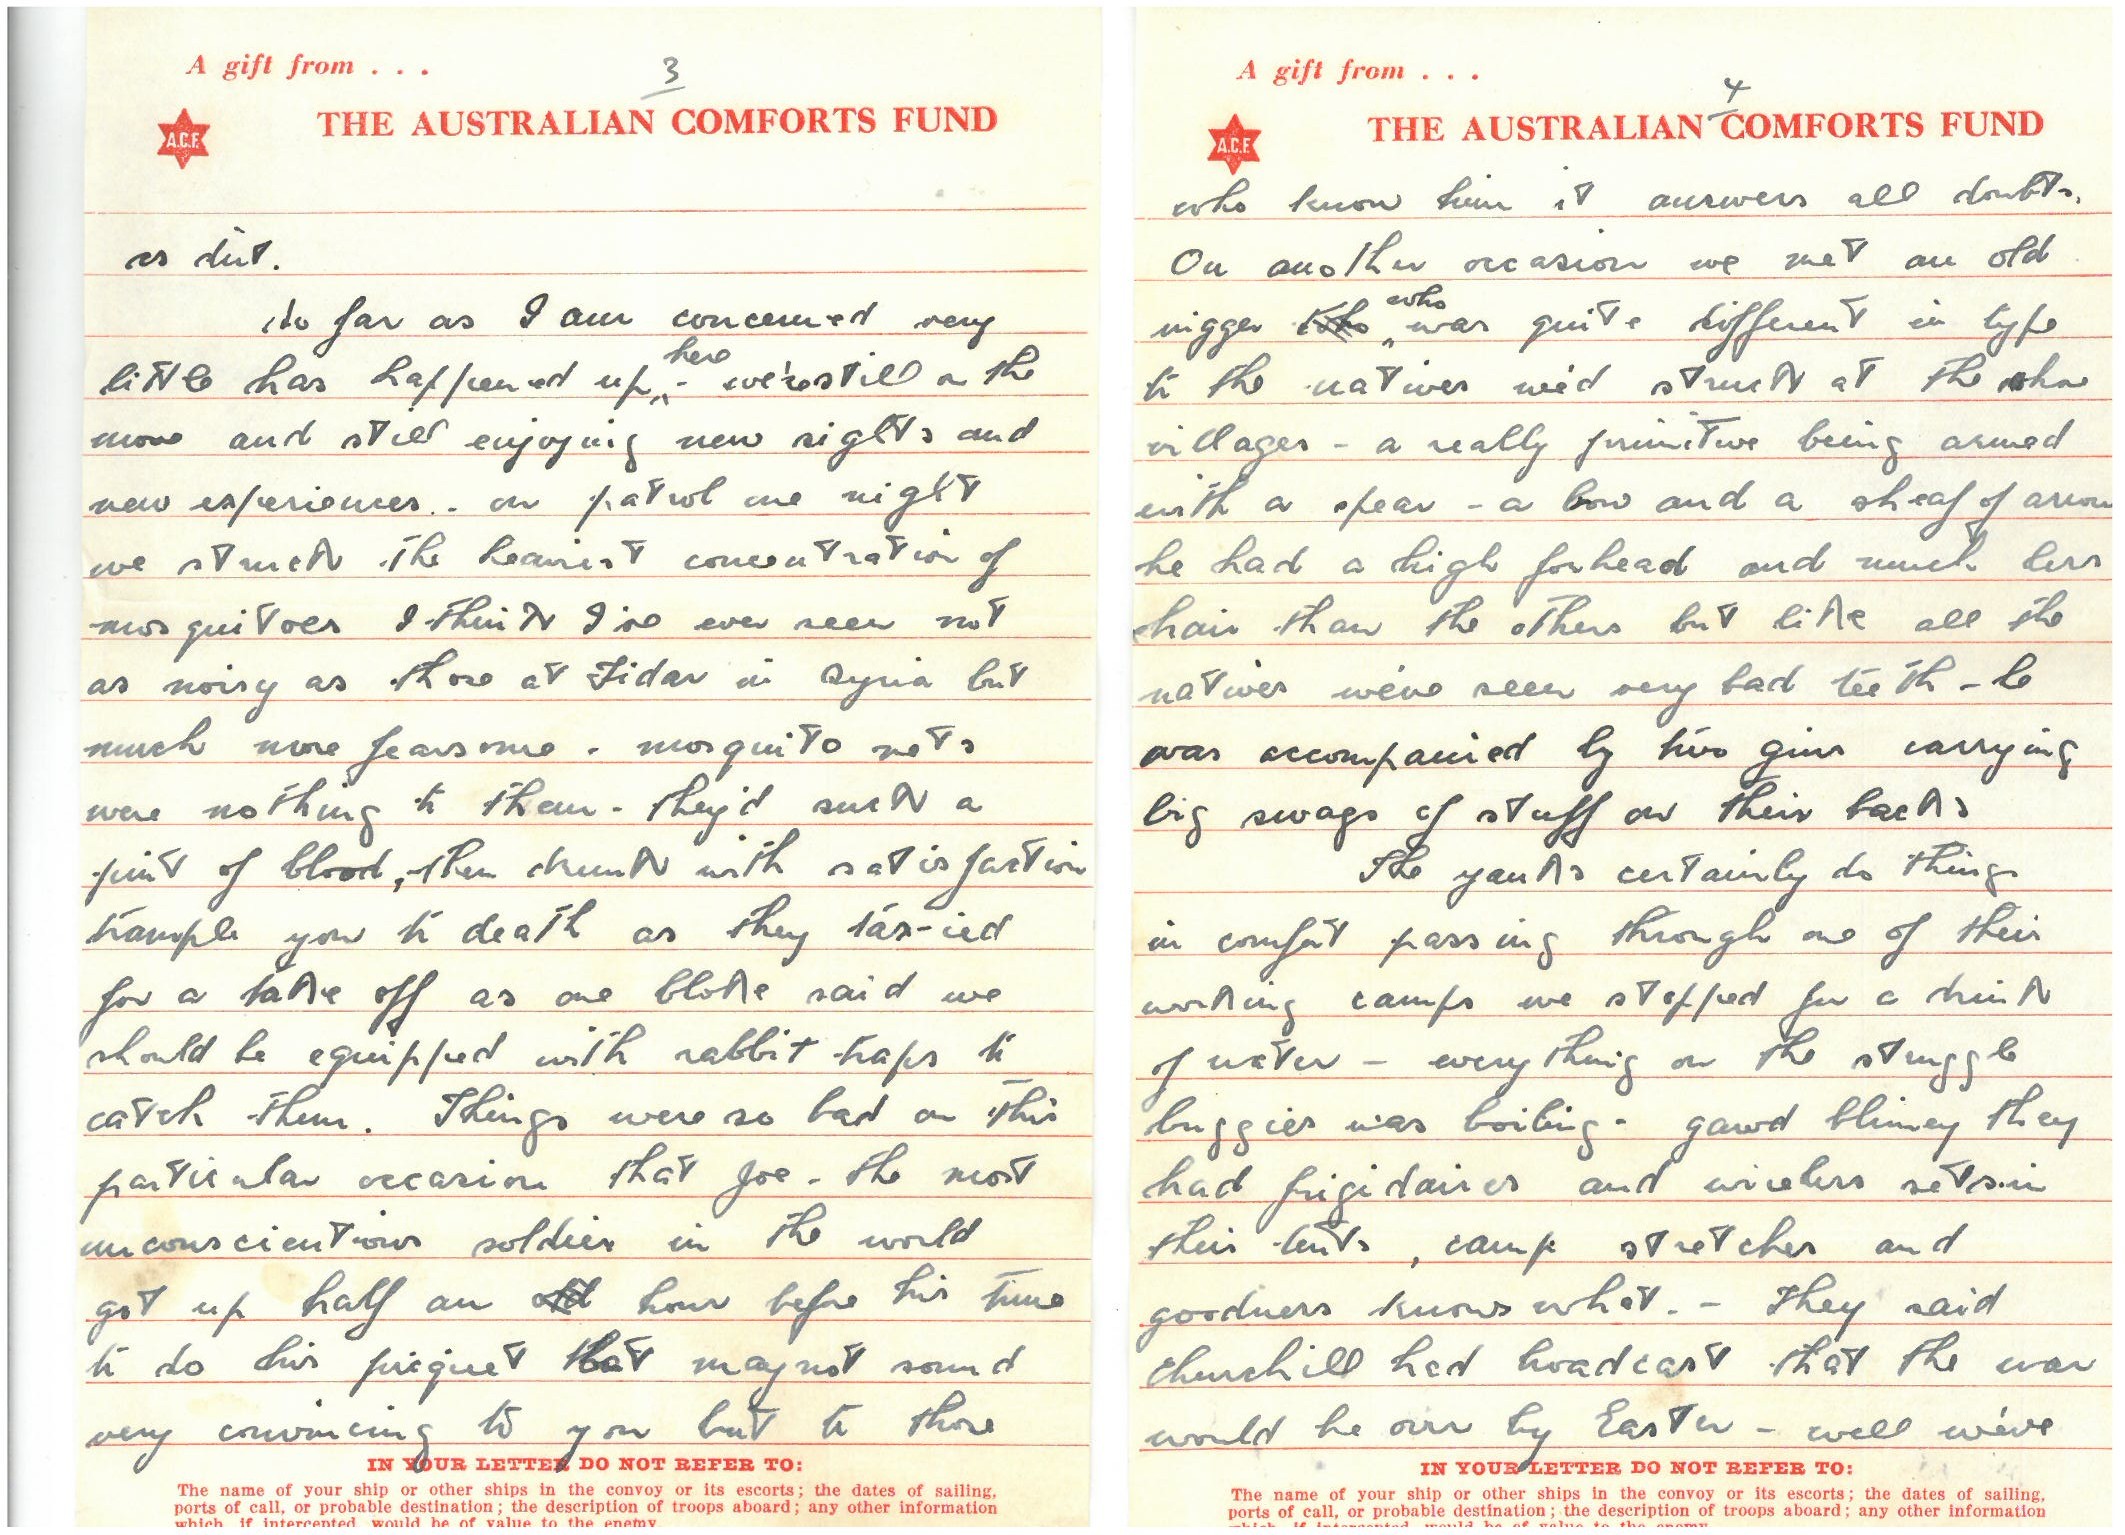 A gift from . . .
3
THE AUSTRALIAN COMFORTS FUND
A.C.F.
as dirt.
So far as I am concerned very
little has happened up here - we're still on the
move and still enjoying new sights and
new experiences - on patrol one night
we struck the heaviest concentration of
mosquitoes I think I've ever seen not
as noisy as those at Fidar in Syria but
much more fearsome - mosquito nets
were nothing to them - they'd suck a
pint of blood, then drunk with satisfaction
trample you to death as they tax-ied
for a take off as one bloke said we
should be equipped with rabbit traps to
catch them. Things were so bad on this
particular occasion that Joe - the most
unconscientious soldier in the world
got up half an hour before his time
to do his picquet that may not sound
very convincing to you but to those
IN YOUR LETTER DO NOT REFER TO:
The name of your ship or other ships in the convoy or its escorts; the dates of sailing,
ports of call, or probable destination; the description of troops aboard; any other information
which, if intercepted, would be of value to the enemy
A gift from . . .
4
THE AUSTRALIAN COMFORTS FUND
A.C.F.
who know him it answers all doubts.
On another occasion we met an old
nigger who was quite different in type
to the natives we'd struck at the shore
villages - a really primitive being armed
with a spear - a bow and a sheaf of arrows
he had a high forhead and much less
hair than the others but like all the
natives we've seen very bad teeth - he
was accompanied by two gins carrying
big swags of stuff on their backs
The yanks certainly do things
in comfort passing through one of their
working camps we stopped for a drink
of water - everything on the struggle
buggies was boiling - gawd blimey they
had frigidaires and wireless sets in
their tents, camp stretcher and
goodness knows what. - They said
Churchill had broadcast that the war
would be over by Easter - well we've
IN YOUR LETTER DO NOT REFER TO:
The name of your ship or other ships in the convoy or its escorts; the dates of sailing,
ports of call, or probable destination; the description of troops aboard; any other information
which, if intercepted, would be of value to the enemy